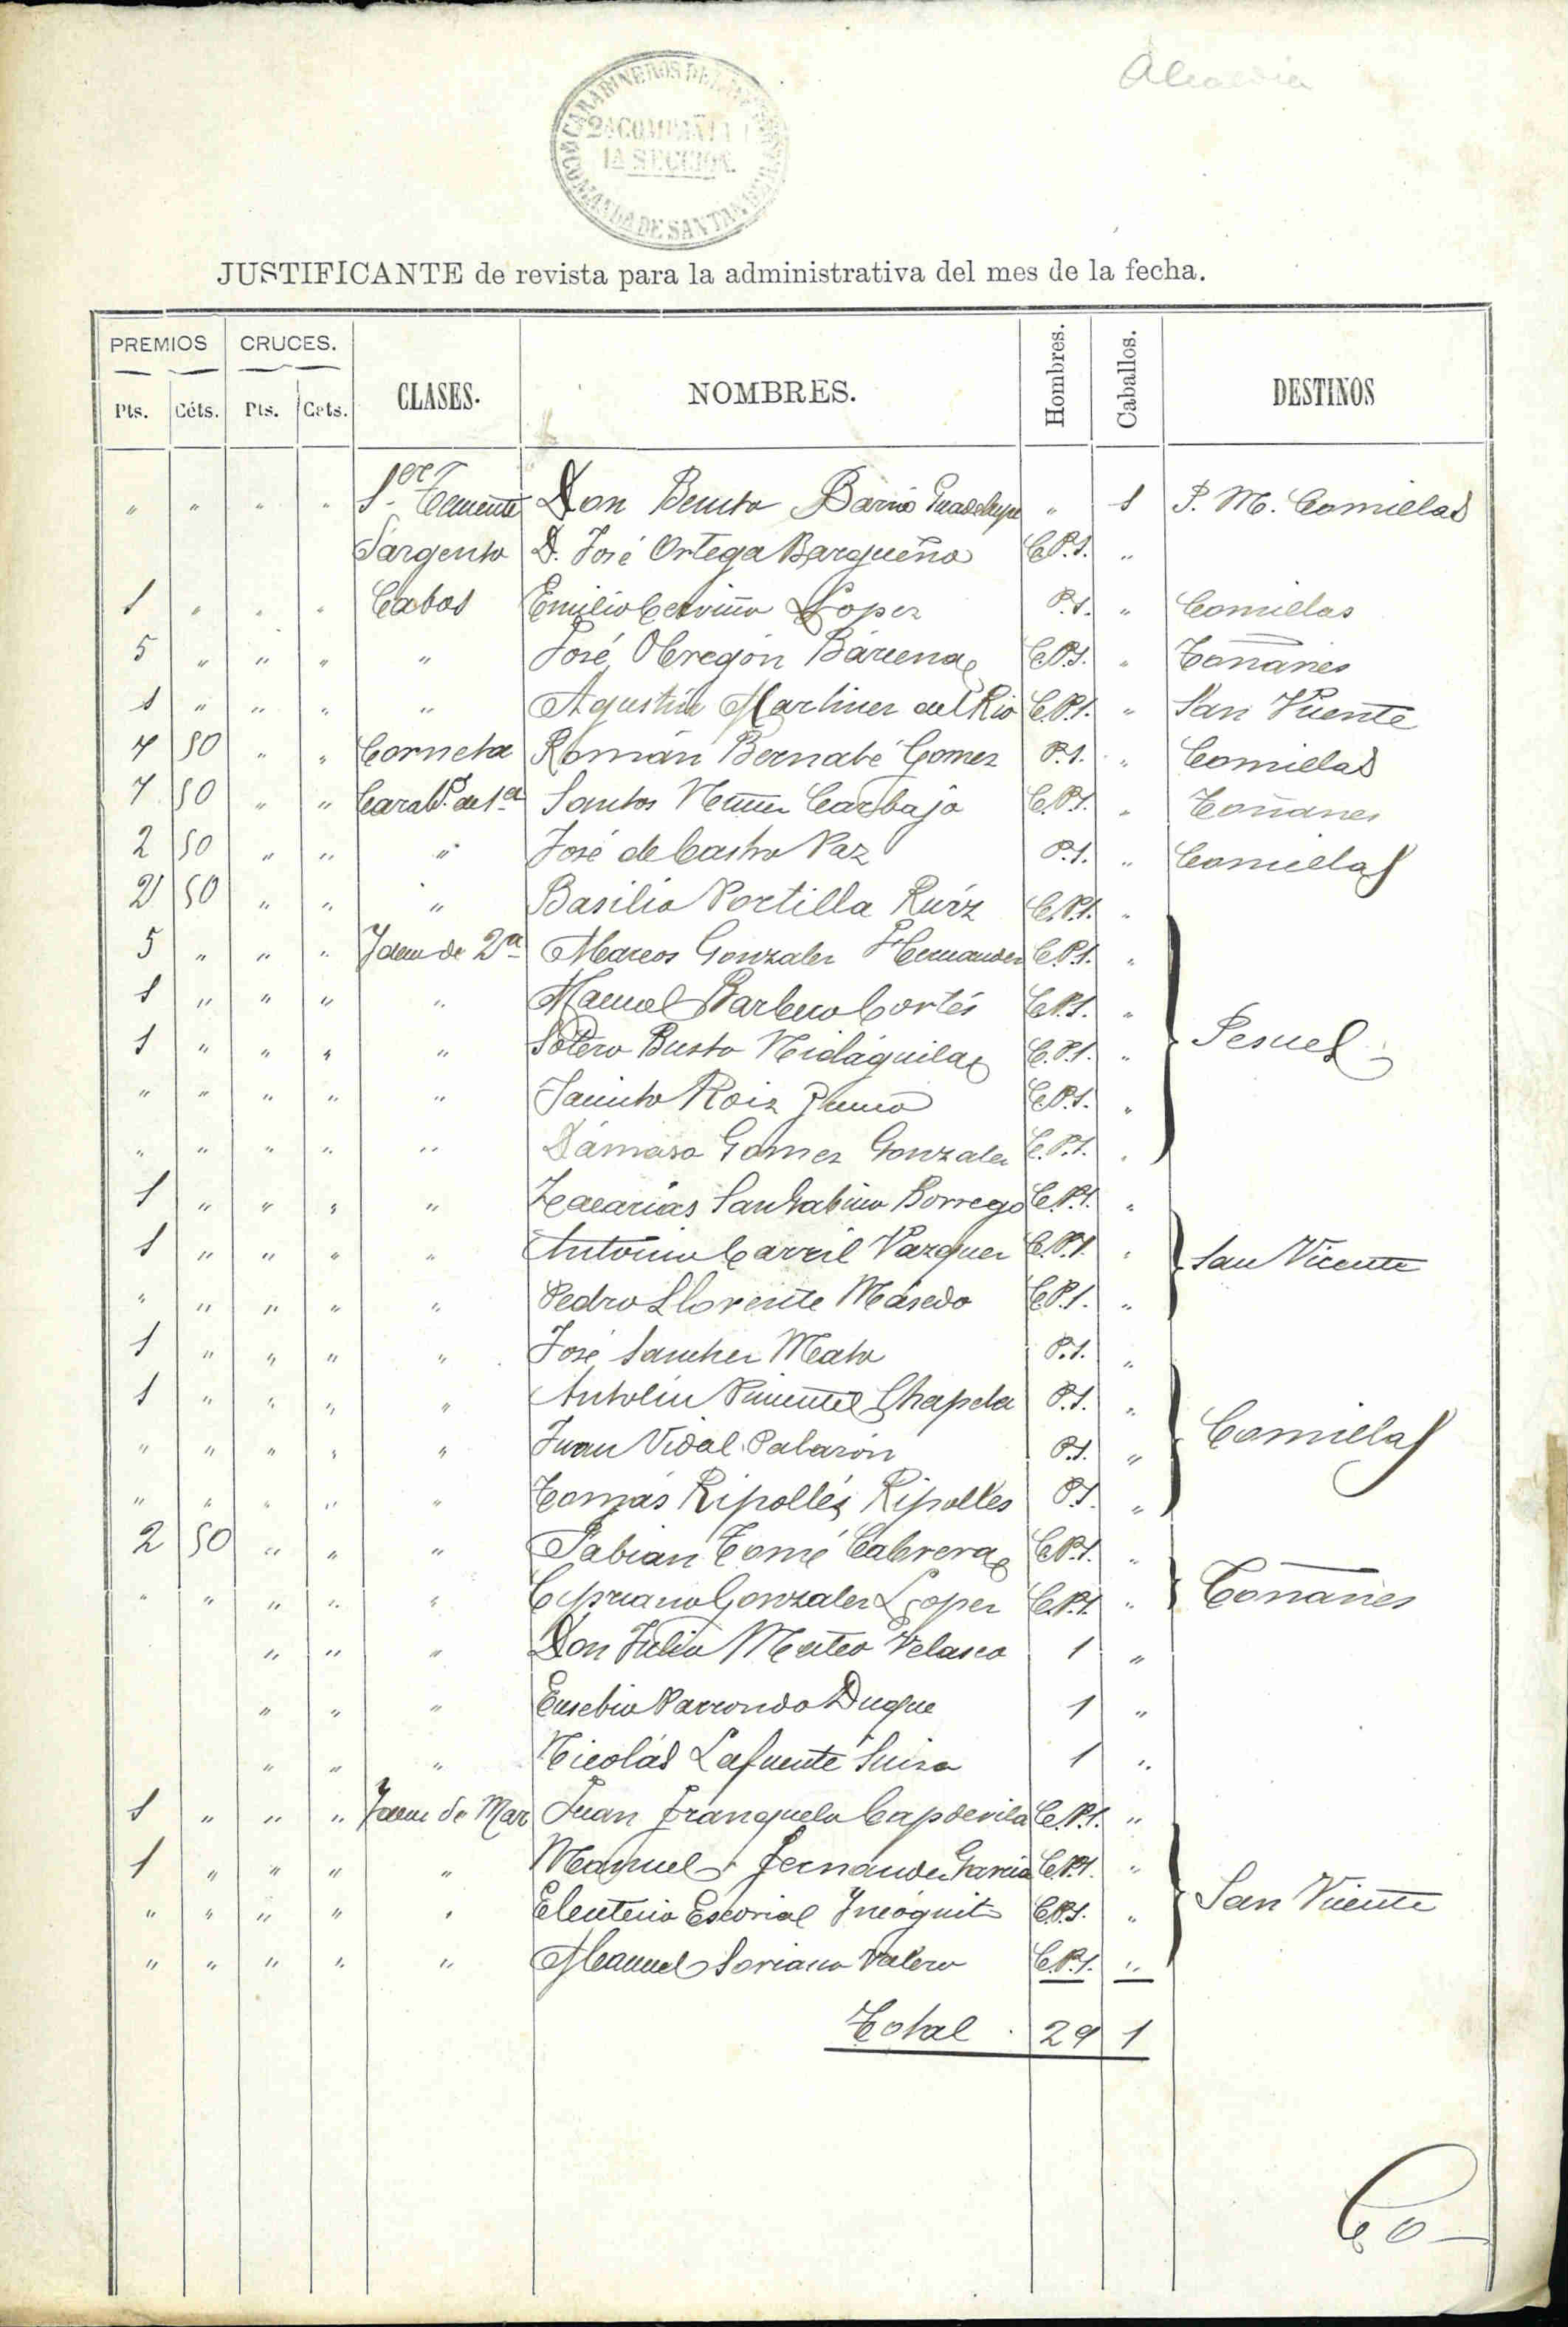 Alcaldía
CARABINEROS DEL
COMANDA DE SANTANDER
2A COMPAÑIA
1A SECCION.
JUSTIFICANTE de revista para la administrativa del mes de la fecha.
PREMIOS CRUCES. CLASES. NOMBRES. Hombres. Caballos. DESTINOS
Pts. Céts. Pts. Cets.
" " " " 1er Teniente Don Benito Barrio Guadalupe " 1 P. M. Comillas
Sargento D. José Ortega Bargueño C.P.1. "
1 " " " Cabos Emilio Cerviño Lopez P.1. " Comillas
5 " " " " José Obregón Bárcena C.P.1. " Toñanes
1 " " " " Agustín Martinez del Rio C.P.1. " San Vicente
7 50 " " Corneta Román Bernabé Gomez P.1. " Comillas
7 50 " " Carabo. de 1a Santos Nuñez Carbajo C.P.1. " Toñanes
2 50 " " " José de Castro Paz P.1. " Comillas
2 50 " " " Basilio Portilla Ruíz C.P.1. "
5 " " " Idem de 2a Marcos Gonzalez Hernandez C.P.1. "
1 " " " " Manuel Barbero Cortés C.P.1. "
1 " " " " Sotero Busto Nidáguila C.P.1. " Pesues
" " " " " Jacinto Roiz C.P.1. "
" " " " " Dámaso Gomez Gonzalez C.P.1. "
1 " " " " Zacarías Borrego C.P.1. "
1 " " " " Antonio Carril Vazquez C.P.1. " San Vicente
" " " " " Pedro Llorente Masedo C.P.1. "
1 " " " " José Sanchez Mato P.1. "
1 " " " " Antolín Pimentel Chapela P.1. "
" " " " " Juan Vidal Palazón P.1. " Comillas
" " " " " Tomás Ripollés Ripolles P.1. "
2 50 " " " Fabian Tomé Cabrera C.P.1. "
" " " " " Cipriano Gonzalez Lopez C.P.1. " Toñanes
" " " Don Julio Mateo Velasco 1 "
" " " Eusebio Parrondo Duque 1 "
" " " Nicolás Lafuente 1 "
1 " " " Idem de Mar Juan Franquelo Capdevila C.P.1. "
1 " " " " Manuel Fernandez Garcia C.P.1. "
" " " " " Eleuterio Escorial Incógnito C.P.1. " San Vicente
" " " " " Manuel Soriano Valero C.P.1. "
Total 29 1